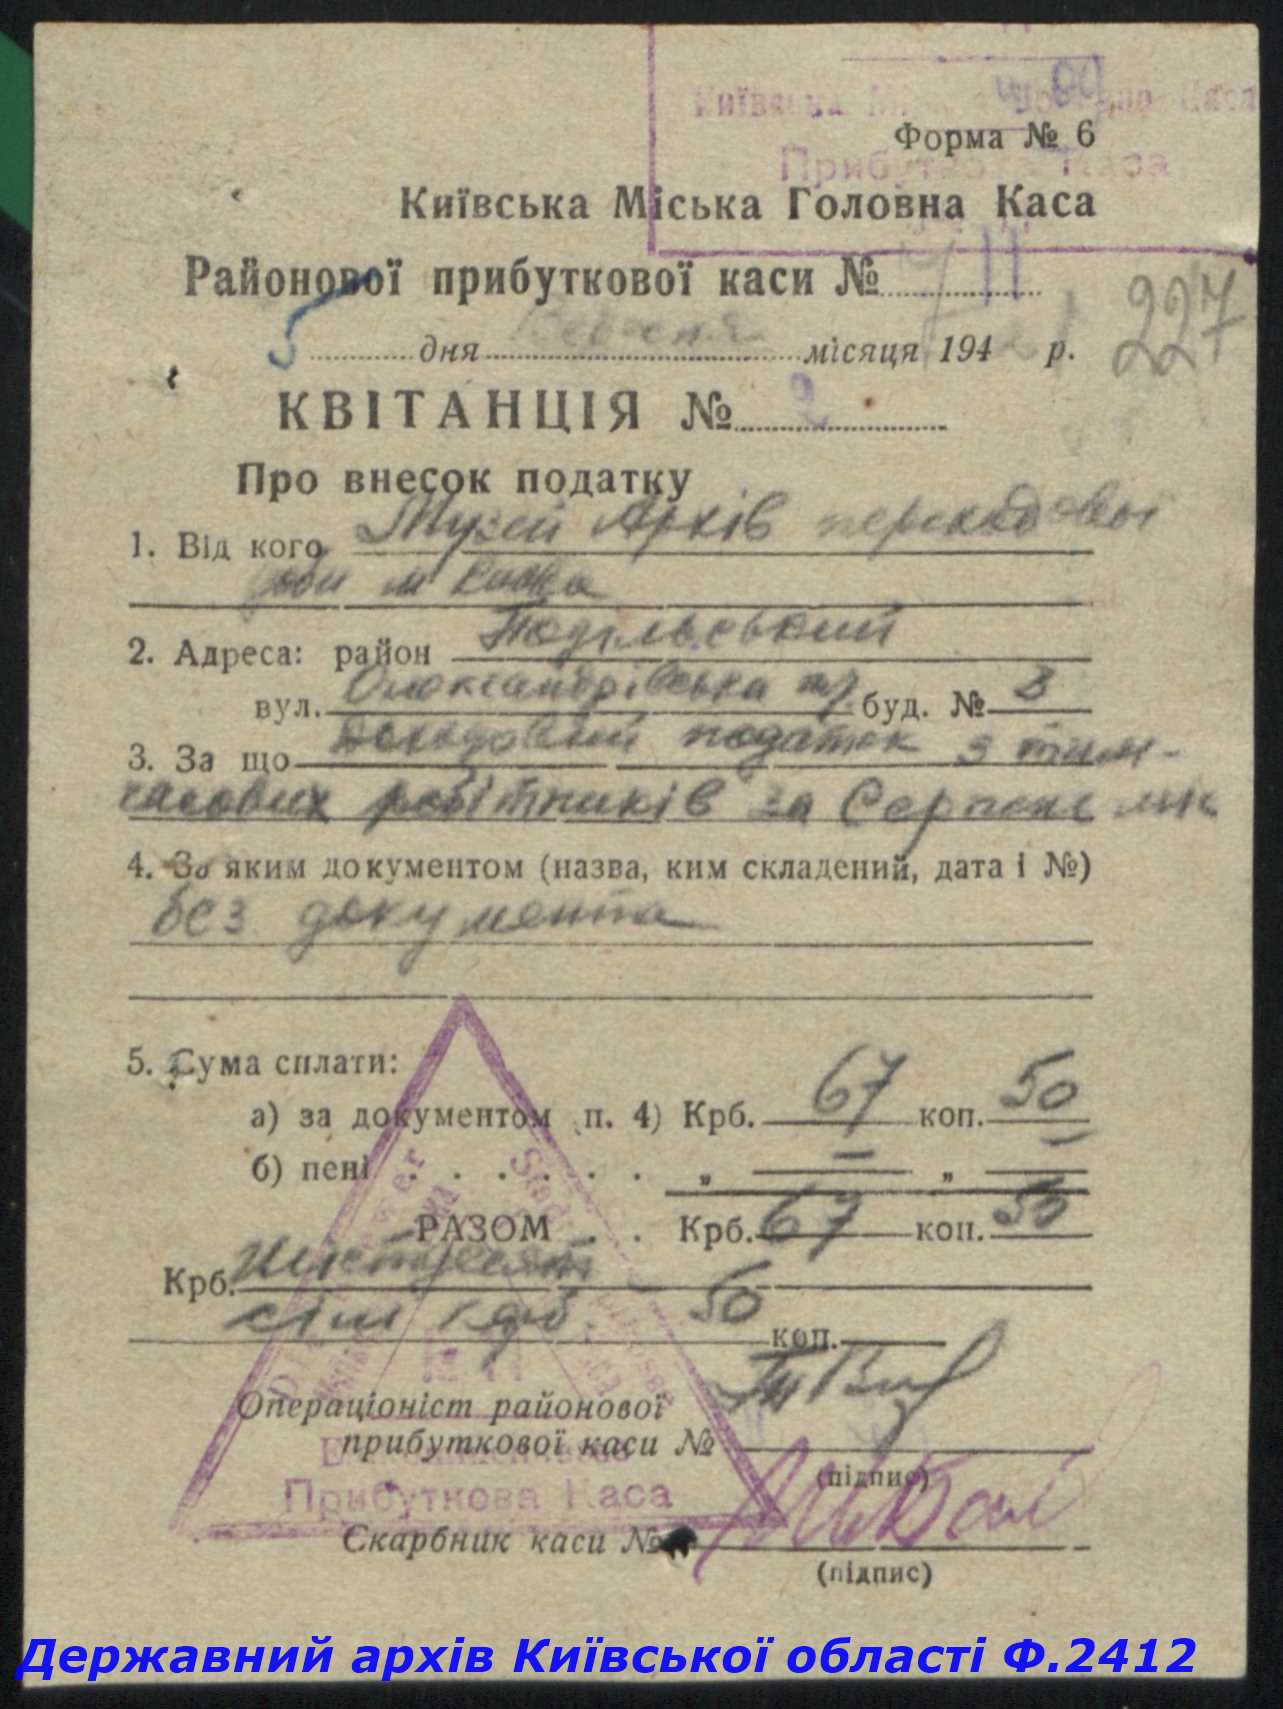 Київська Міська Головна Каса
Прибуткова Каса
Форма № 6
Київська Міська Головна Каса
Районової прибуткової каси № 11
5 дня Вересня місяця 194 р.
227
КВІТАНЦІЯ № 2
Про внесок податку
1. Від кого Музей Архів переходової
доби м Києва
2. Адреса: район Подільський
вул. Олександрівська пл буд. № 8
3. За що податок з тим-
часових робітників за Серпень м-ць
4. За яким документом (назва, ким складений, дата і №)
без документа
5. Сума сплати:
а) за документом п. 4) Крб. 67 коп. 50
б) пені . . . . . . „ — „ —
РАЗОМ . . Крб. 67 коп. 50
Крб. Шістдесят
сім крб. 50 коп.
Операціоніст районової
прибуткової каси №
(підпис)
Прибуткова Каса
Скарбник каси №
(підпис)
Державний архів Київської області Ф.2412